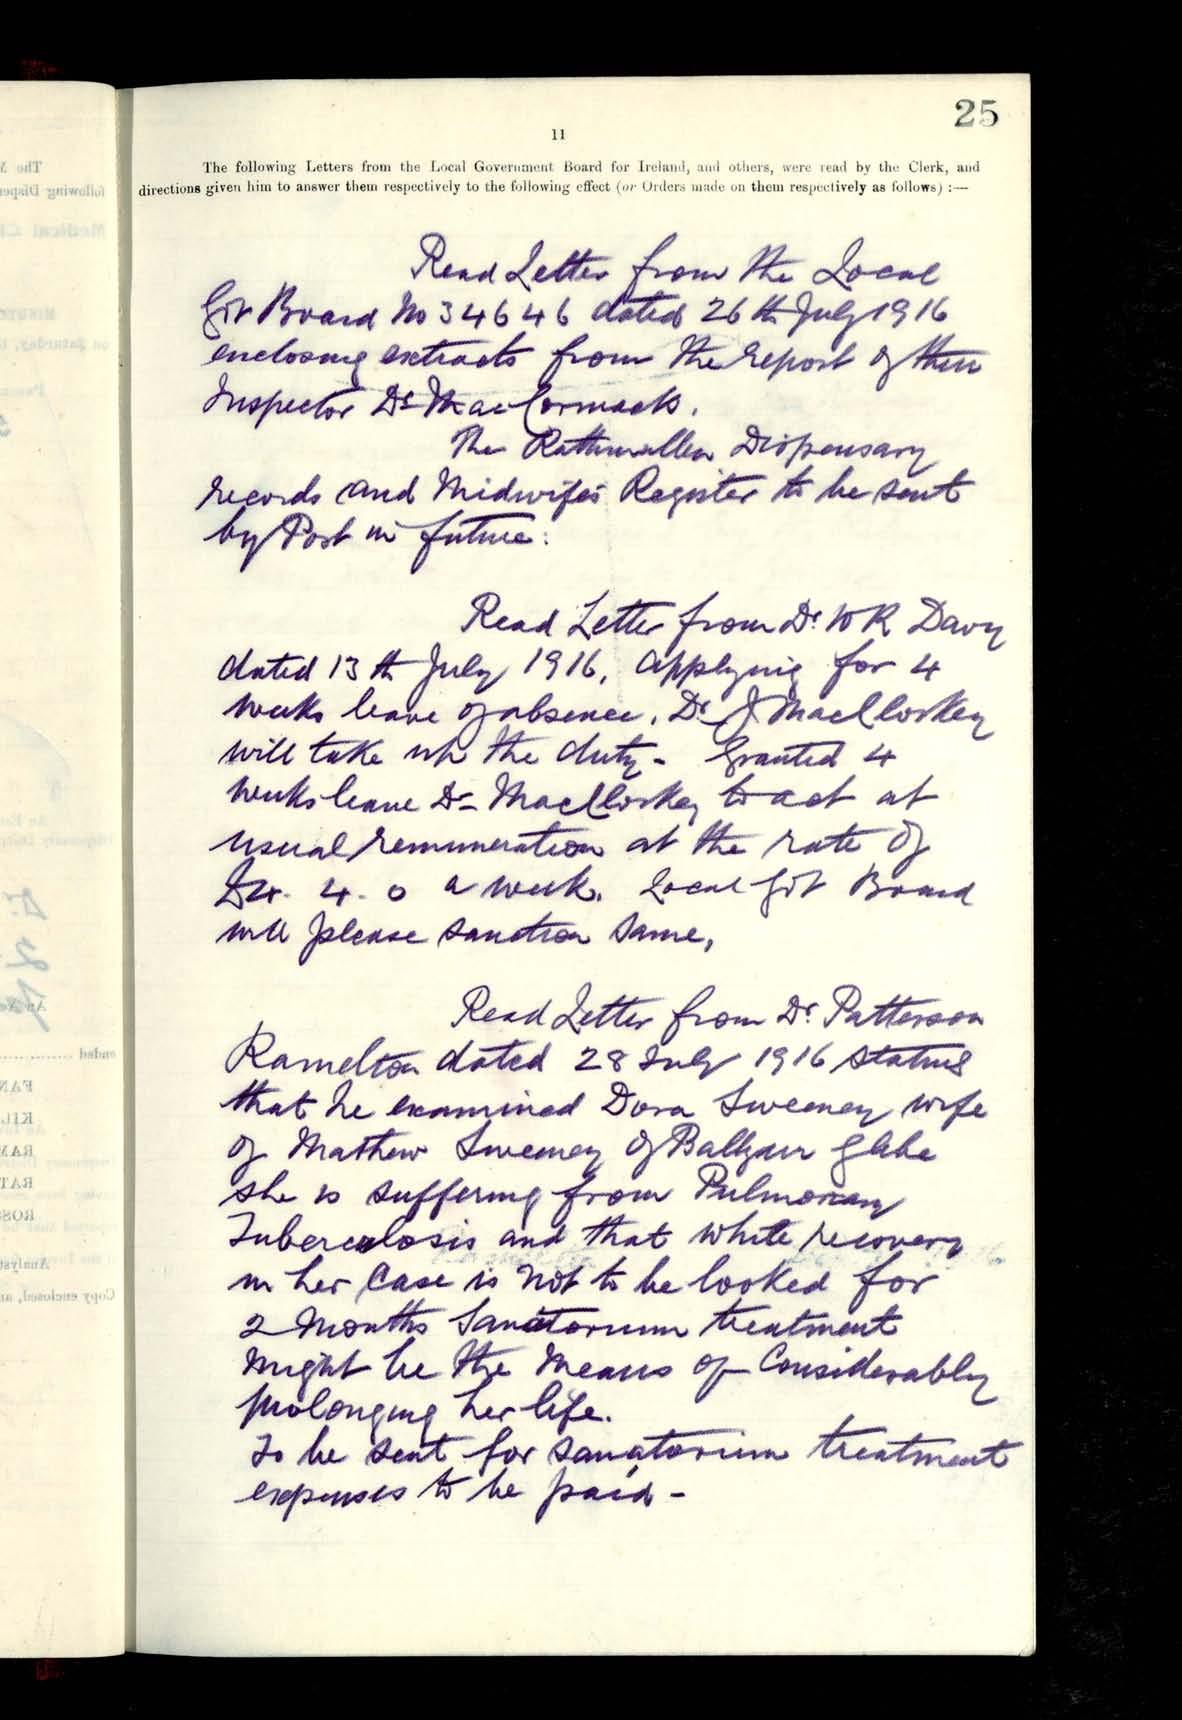 25
11
The following Letters from the Local Government Board for Ireland, and others, were read by the Clerk, and
directions given him to answer them respectively to the following effect (or Orders made on them respectively as follows) :—
Read Letter from the Local
Govt Board No 34646 dated 26th July 1916
enclosing extracts from the report of their
Inspector Dr MacCormack.
The Rathmullen Dispensary
records and Midwifes Register to be sent
by Post in future.
Read Letter from Dr. W R Davy
dated 13th July 1916. applying for 4
weeks leave of absence. Dr J MacCloskey
will take up the duty - Granted 4
weeks leave Dr MacCloskey to act at
usual remuneration at the rate of
£4. 4. 0 a week. Local Govt Board
will please sanction same,
Read Letter from Dr. Patterson
Ramelton dated 28 July 1916 stating
that he examined Dora Sweeney wife
of Mathew Sweeney of Glebe
she is suffering from Pulmonary
Tuberculosis and that while recovery
in her Case is not to be looked for
2 Months Sanatorium treatment
might be the means of Considerably
prolonging her life.
To be sent for sanatorium treatment
expenses to be paid -